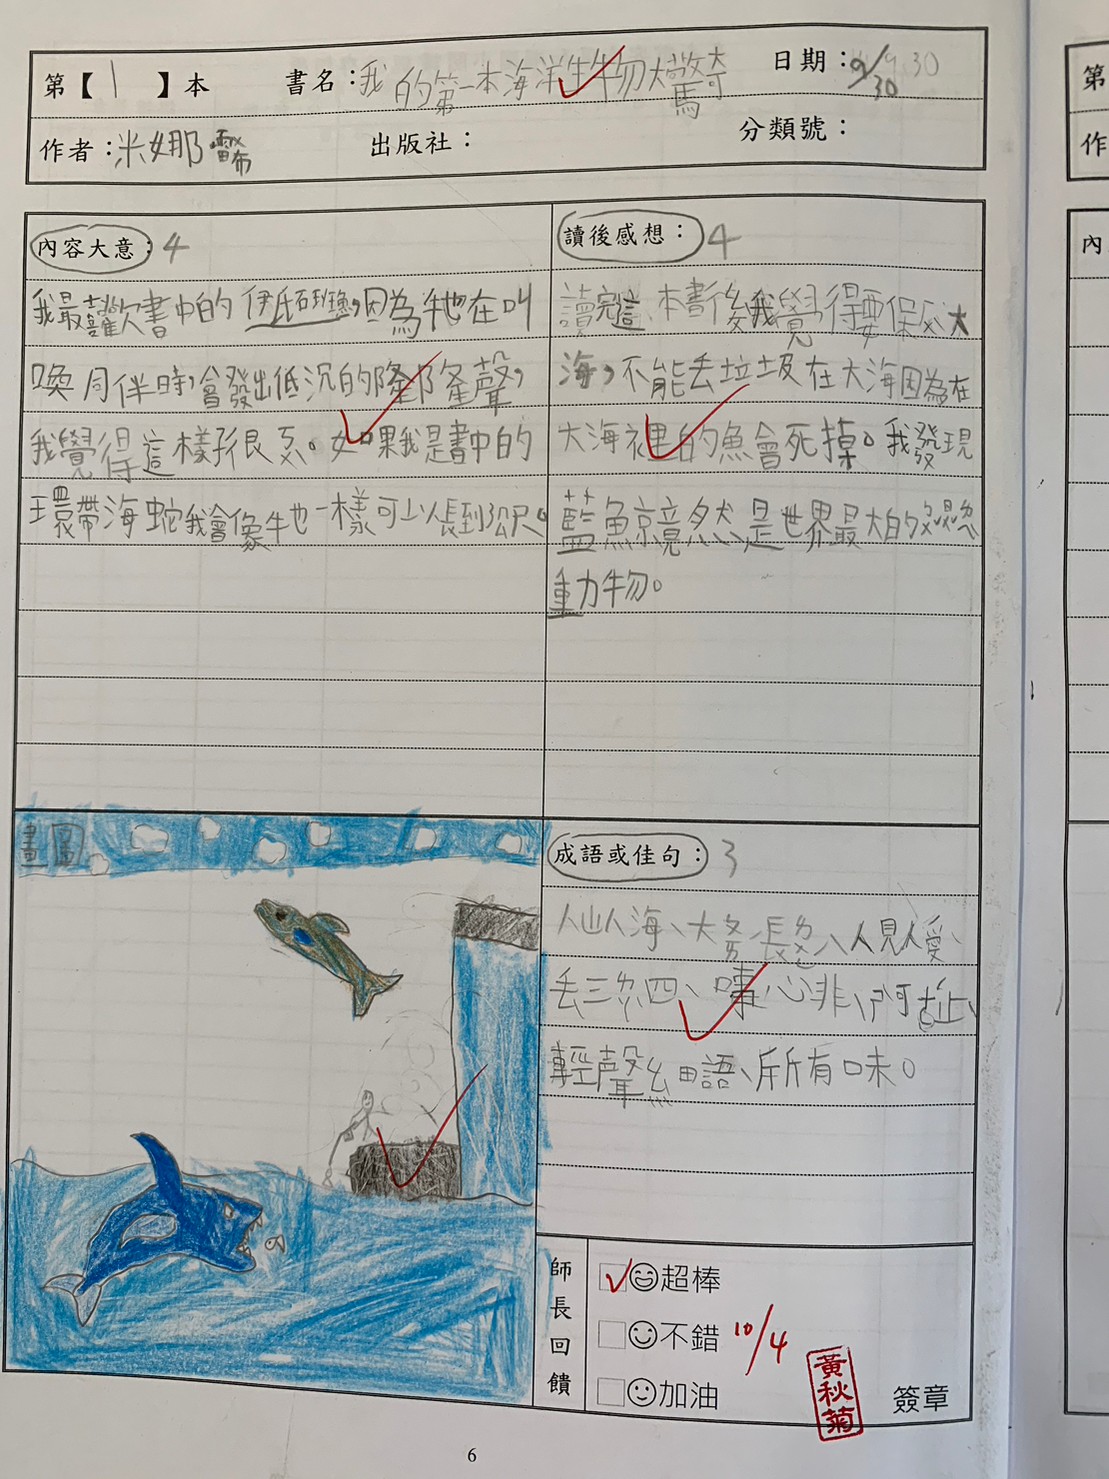 第【 1 】本 書名：我的第一本海洋生物大驚奇 日期：9/30
作者：米娜 出版社： 分類號：
內容大意：4
我最喜歡書中的伊氏石斑魚，因為牠在叫
喚同伴時，會發出低沉的隆隆聲，
我覺得這樣子很ㄎㄨ。如果我是書中的
環帶海蛇我會像牠一樣可以長到3公尺。
讀後感想：4
讀完這本書後我覺得要保ㄏㄨ大
海，不能丟垃圾在大海因為在
大海裡的魚會死掉。我發現
藍鯨竟然是世界最大的
動物。
畫圖
成語或佳句：3
人山人海、大ㄎㄞ、人見人愛、
丟三ㄌㄚ四、心非、
輕聲細語、所有味。
師長回饋
超棒
不錯
加油
10/4
黃秋菊
簽章
6
第
作
內